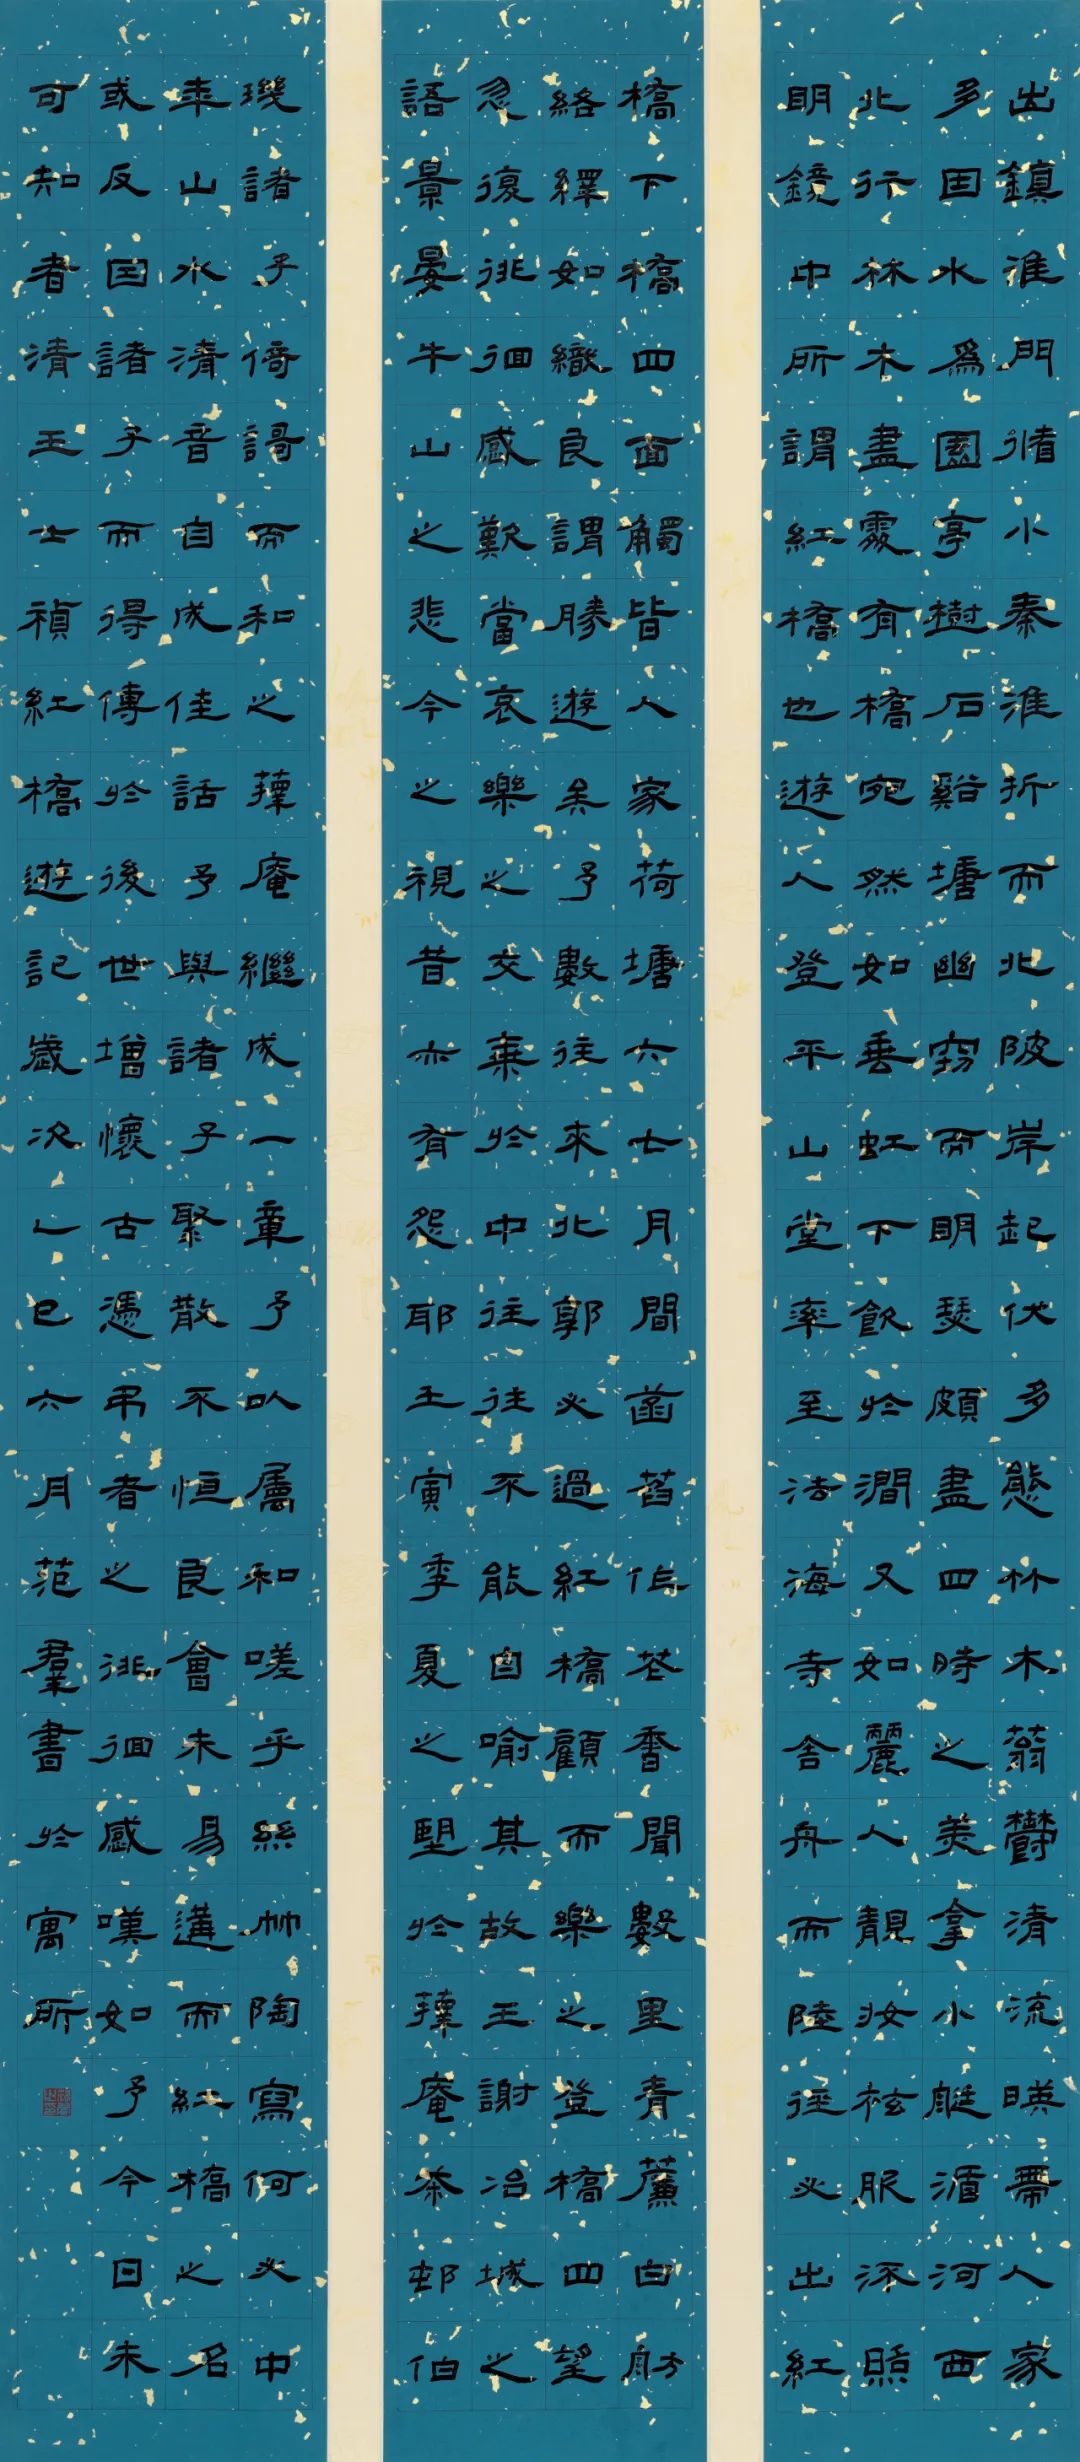 出鎮淮門循小秦淮折而北陂岸起伏多態竹木蓊鬱清流暎帶人家
多因水為園亭樹石谿塘幽窈而明瑟頗盡四時之美拏小艇循河西
北行林木盡處有橋宛然如垂虹下飲於澗又如麗人靚妝袨服流照
明鏡中所謂紅橋也遊人登平山堂率至法海寺舍舟而陸徑必出紅
橋下橋四面觸皆人家荷塘六七月間菡萏作花香聞數里青簾白舫
絡繹如織良謂勝遊矣予數往來北郭必過紅橋顧而樂之登橋四望
忽復徘徊感歎當哀樂之交乘於中往往不能自喻其故王謝冶城之
語景晏牛山之悲今之視昔亦有怨耶壬寅季夏之望於蘀庵茶邨伯
璣諸子倚謌而和之蘀庵繼成一章予以屬和嗟乎絲竹陶寫何必中
年山水清音自成佳話予與諸子聚散不恒良會未易遘而紅橋之名
或反因諸子而得傳於後世增懷古憑弔者之徘徊感嘆如予今日未
可知者清王士禎紅橋遊記歲次乙巳六月范羣書於寓所